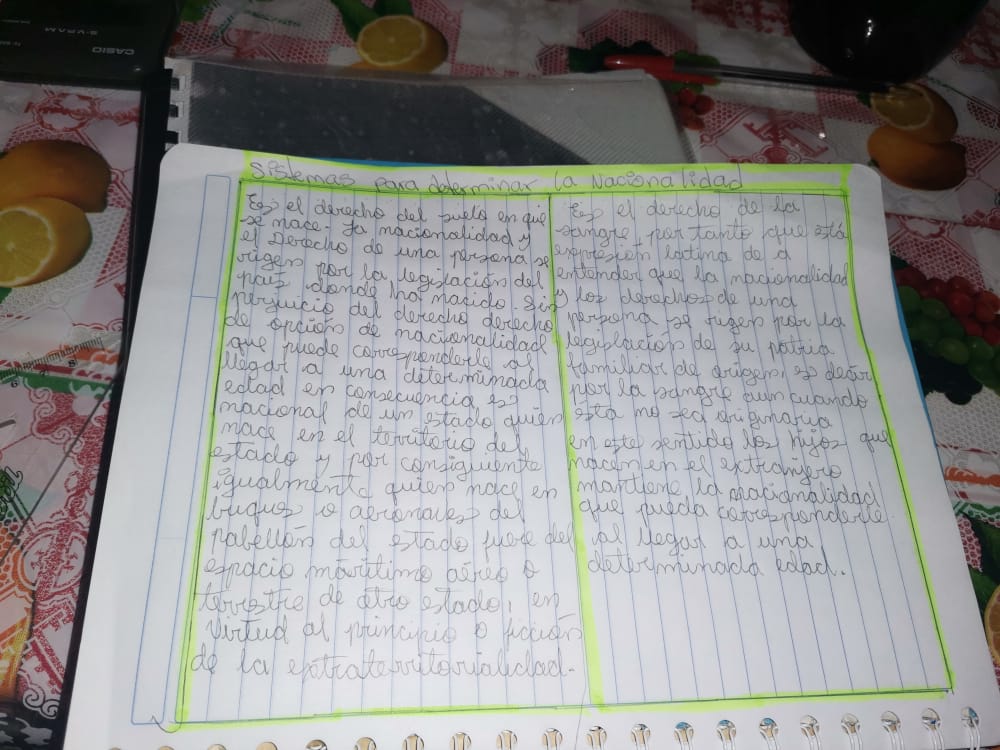 CASIO
S-V.P.A.M.
Sistemas para determinar la Nacionalidad
Es el derecho del suelo en que
se nace. La nacionalidad y
el Derecho de una persona se
rigen por la legislación del
país donde ha nacido sin
perjuicio del derecho derecho
de opción de nacionalidad
que puede corresponderle al
llegar a una determinada
edad en consecuencia es
nacional de un estado quién
nace en el territorio del
estado y por consiguiente
igualmente quien nace en
buques o aeronaves del
pabellón del estado fuera del
espacio marítimo aéreo o
terrestre de otro estado, en
virtud al principio o ficción
de la extraterritorialidad.
Es el derecho de la
sangre, por tanto que está
expresión latina de a
entender que la nacionalidad
y los derechos de una
persona se rigen por la
legislación de su patria
familiar de origen, es decir
por la sangre aun cuando
esta no sea originaria
en este sentido los hijos que
nacen en el extranjero
mantiene la nacionalidad
que pueda corresponderle
al llegar a una
determinada edad.